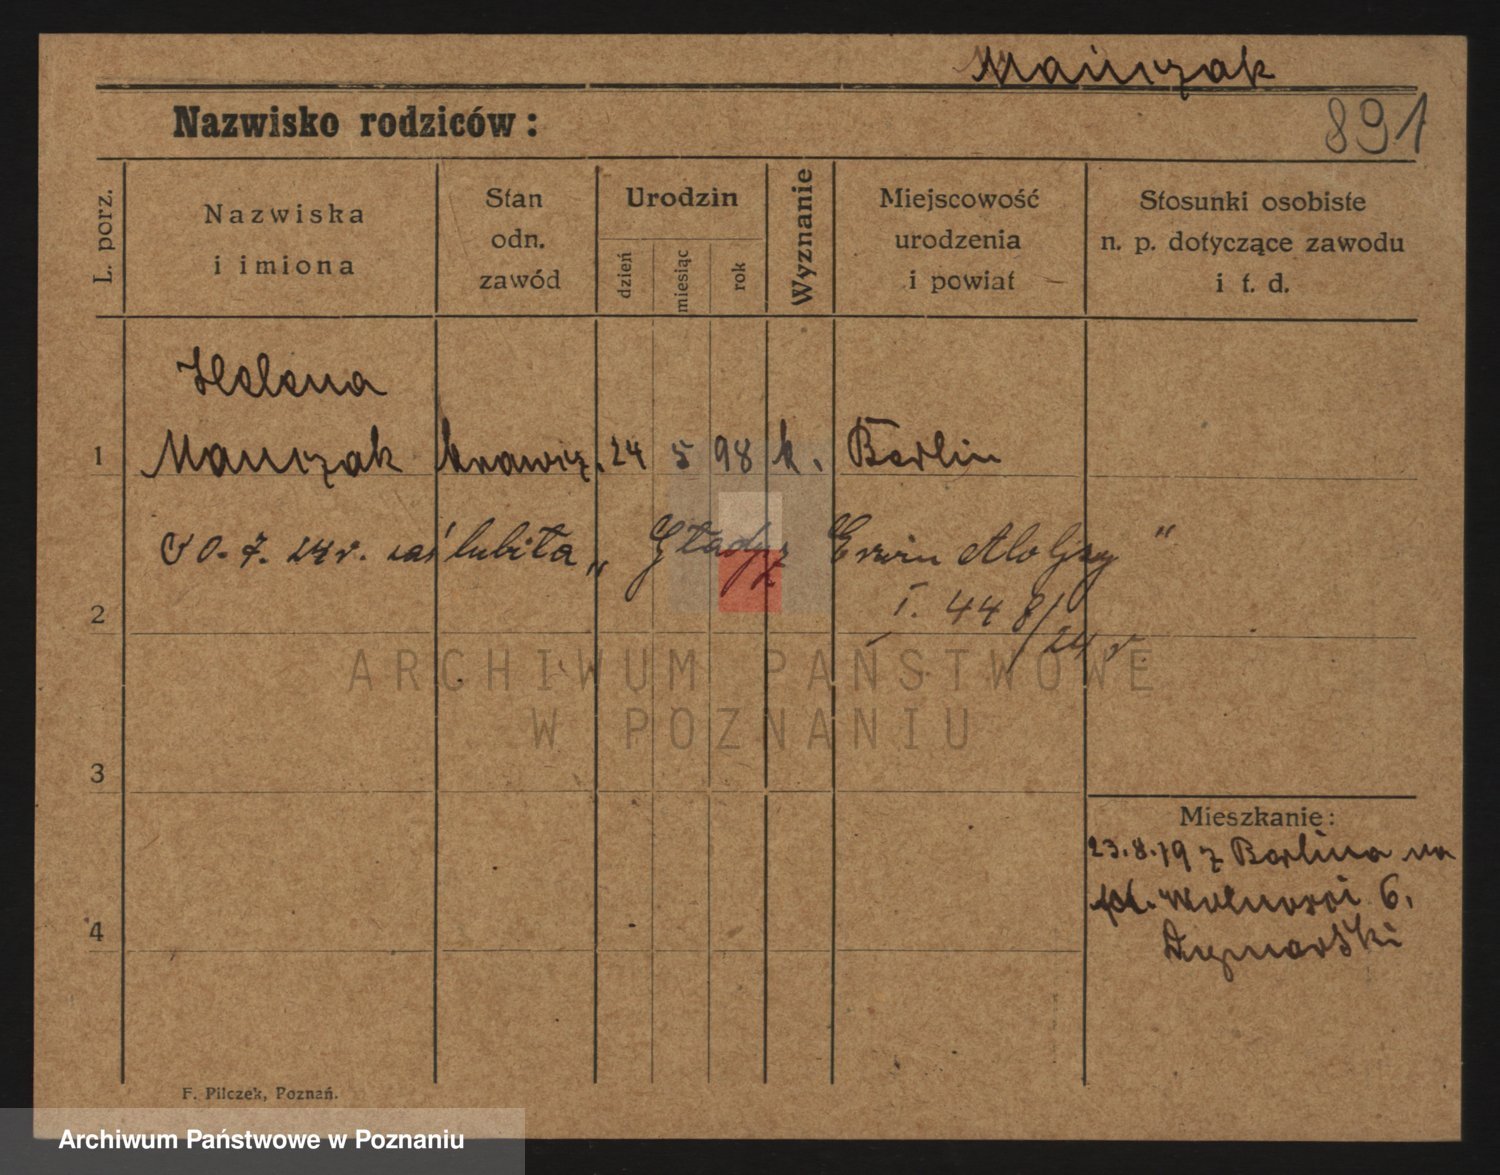 Mańczak
891
Nazwisko rodziców:
L. porz.
Nazwiska
i imiona
Stan
odn.
zawód
Urodzin
dzień
miesiąc
rok
Wyznanie
Miejscowość
urodzenia
i powiat
Stosunki osobiste
n. p. dotyczące zawodu
i t. d.
Helena
1 Manczak krawcz. 24 5 98 k. Berlin
7. 24 r. zaślubiła „Gładysz Erwin Alojzy"
I. 448/24 r
2
ARCHIWUM PAŃSTWOWE
W POZNANIU
3
Mieszkanie:
23.8.19 z Berlina na
pl. Wolnosci 6.
4
F. Pilczek, Poznań.
Archiwum Państwowe w Poznaniu